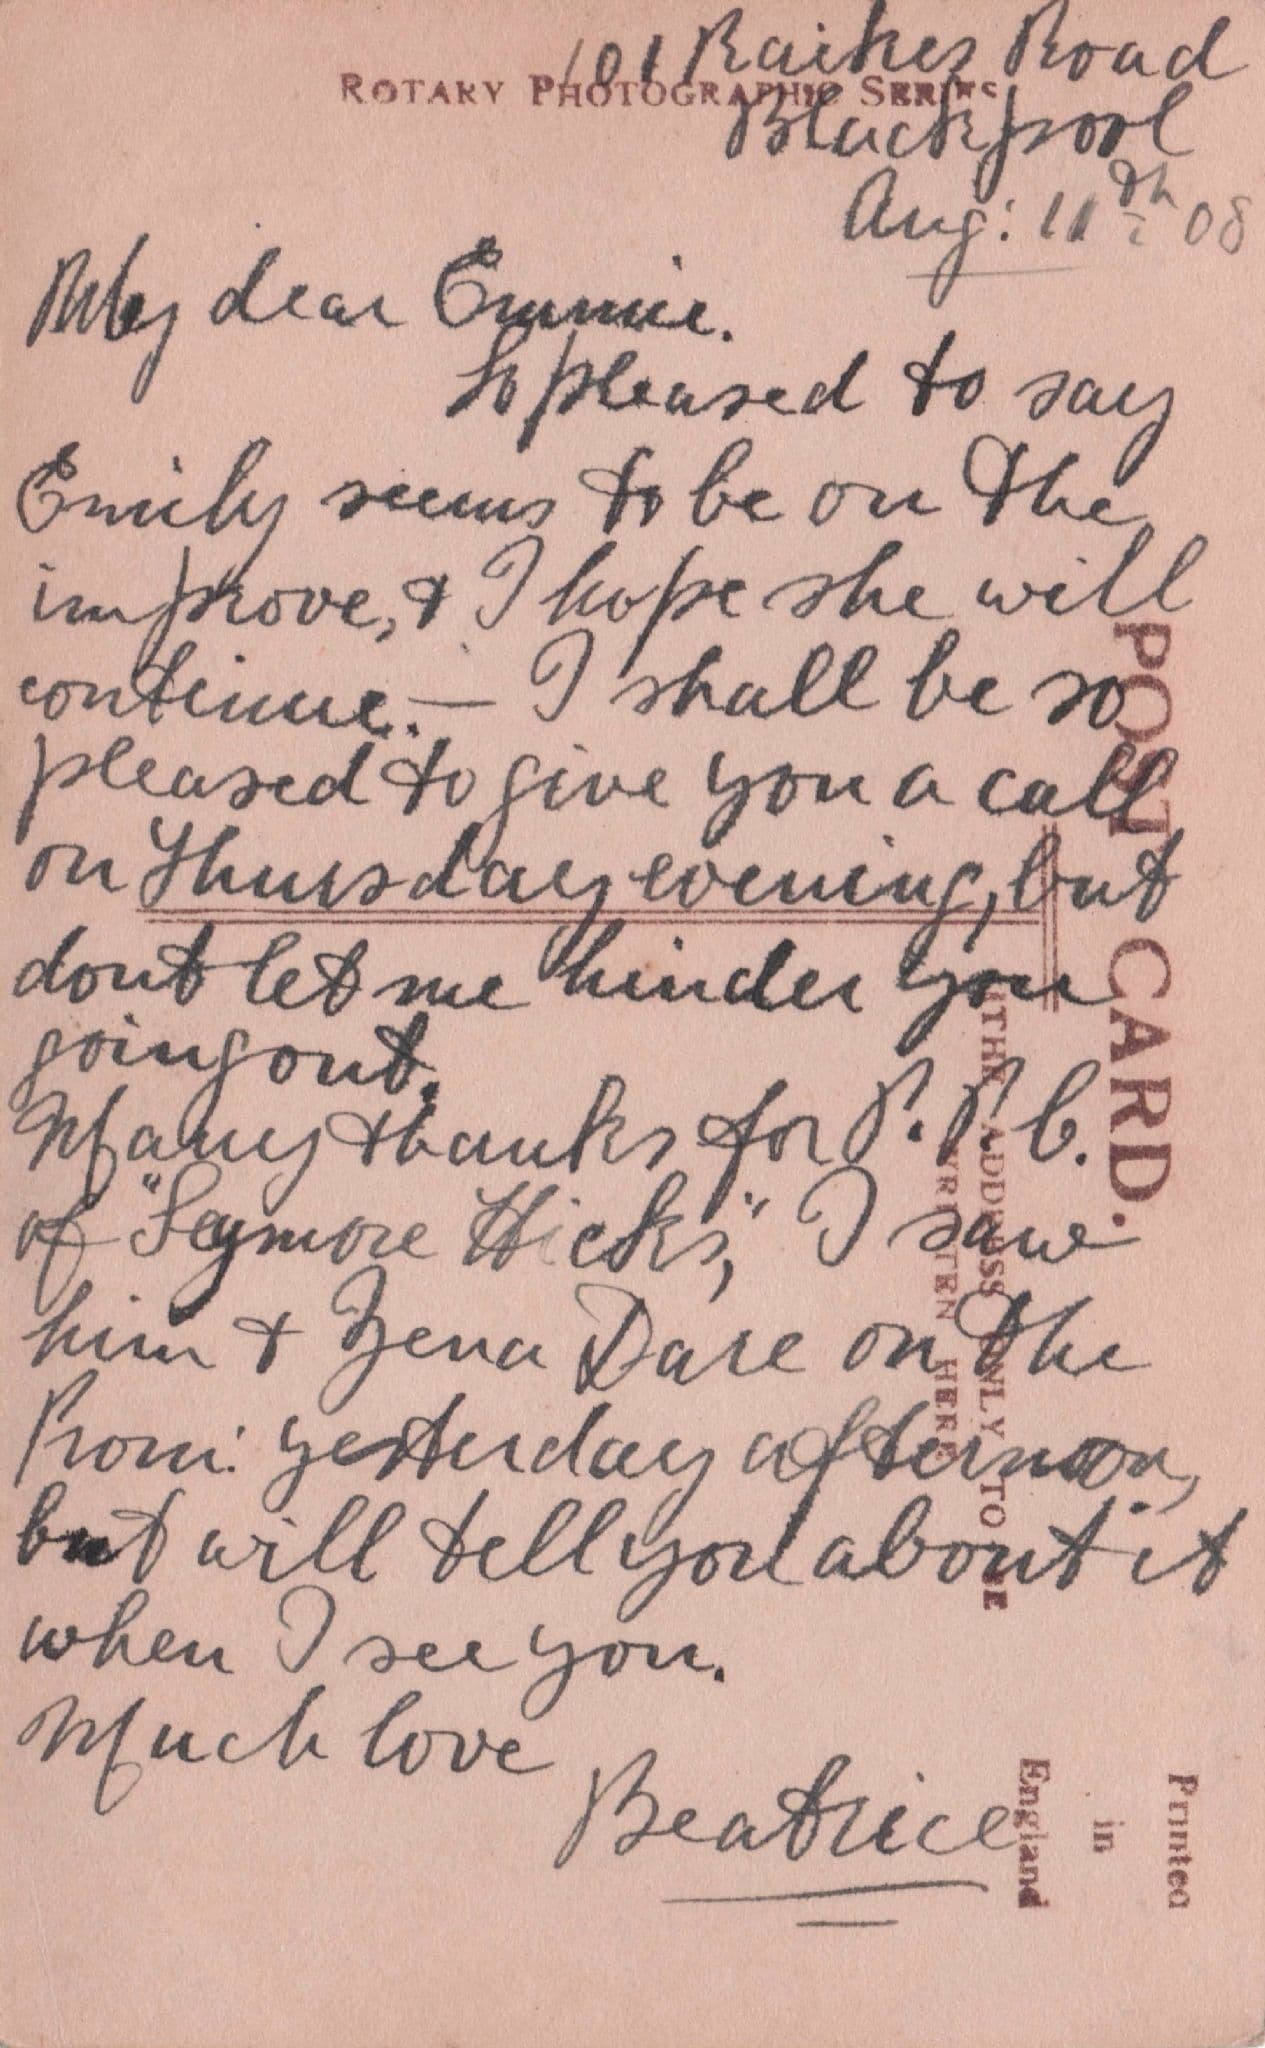 101 Raikes Road
ROTARY PHOTOGRAPHIC SERIES
Blackpool
Aug: 11th 08
My dear Emmie.
So pleased to say
Emily seems to be on the
improve, & I hope she will
continue. — I shall be so
pleased to give you a call
on Thursday evening, but
dont let me hinder you
going out.
Many thanks for P.P.C.
of "Seymore Hicks," I saw
him & Zena Dare on the
Prom: yesterday afternoon,
but will tell you about it
when I see you.
Much love
Beatrice
POST CARD.
THE ADDRESS ONLY TO BE
WRITTEN HERE
Printed
in
England